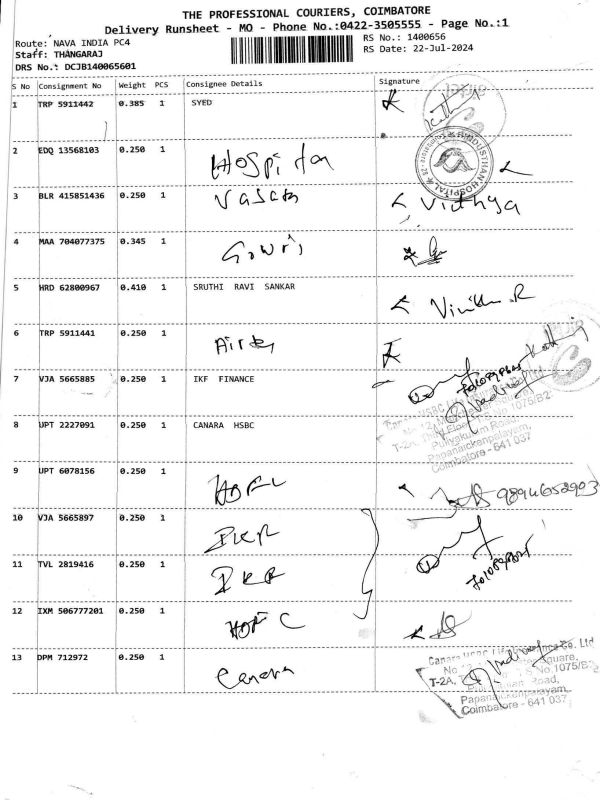 THE PROFESSIONAL COURIERS, COIMBATORE
Delivery Runsheet - MO - Phone No.:0422-3505555 - Page No.:1
Route: NAVA INDIA PC4 RS No.: 1400656
Staff: THANGARAJ RS Date: 22-Jul-2024
DRS No.: DCJB140065601
S No Consignment No Weight PCS Consignee Details Signature
1 TRP 5911442 0.385 1 SYED
2 EDQ 13568103 0.250 1 Hospital
HINDUSTHAN HOSPITAL
3 BLR 415851436 0.250 1 Vasan Vidhya
4 MAA 704077375 0.345 1 Gowri
5 HRD 62800967 0.410 1 SRUTHI RAVI SANKAR
6 TRP 5911441 0.250 1 Airtel
7 VJA 5665885 0.250 1 IKF FINANCE
8 UPT 2227091 0.250 1 CANARA HSBC
Canara HSBC
T-2A, Third Floor, S.No.1075/B2
Puliyakulam Road,
Papanaickenpalayam,
Coimbatore - 641 037
9 UPT 6078156 0.250 1 HDFC 9894652903
10 VJA 5665897 0.250 1 IKF
11 TVL 2819416 0.250 1 IKF
12 IXM 506777201 0.250 1 HDFC
13 DPM 712972 0.250 1 Canara
Canara HSBC Life Insurance Co. Ltd
Square,
T-2A, S.No.1075/B2
Road,
Papanaickenpalayam,
Coimbatore - 641 037